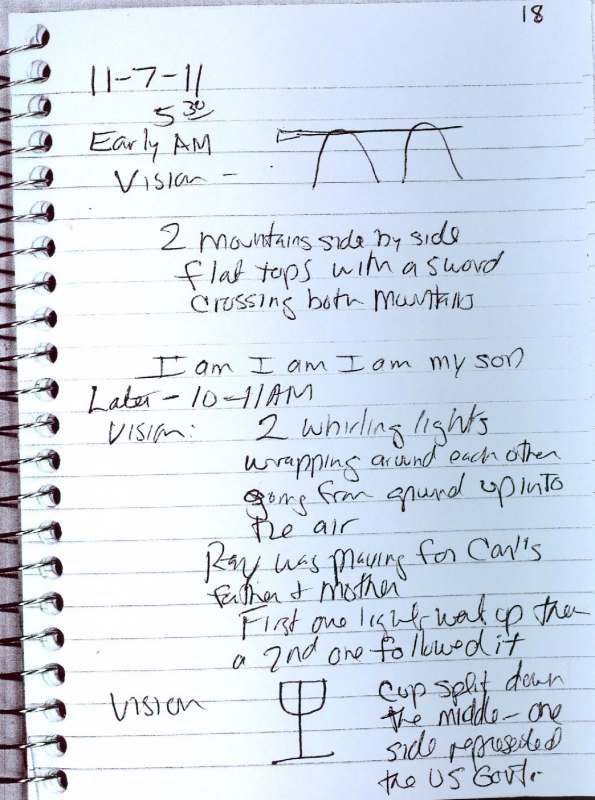 18
11-7-11
5 30
Early AM
Vision -
2 mountains side by side
flat tops with a sword
crossing both mountains
I am I am I am my son
Later - 10-11AM
Vision: 2 whirling lights
wrapping around each other
going from ground up into
the air
Ray was praying for Carl's
father + mother
First one light went up then
a 2nd one followed it
Vision
Cup split down
the middle - one
side represented
the US Govt.